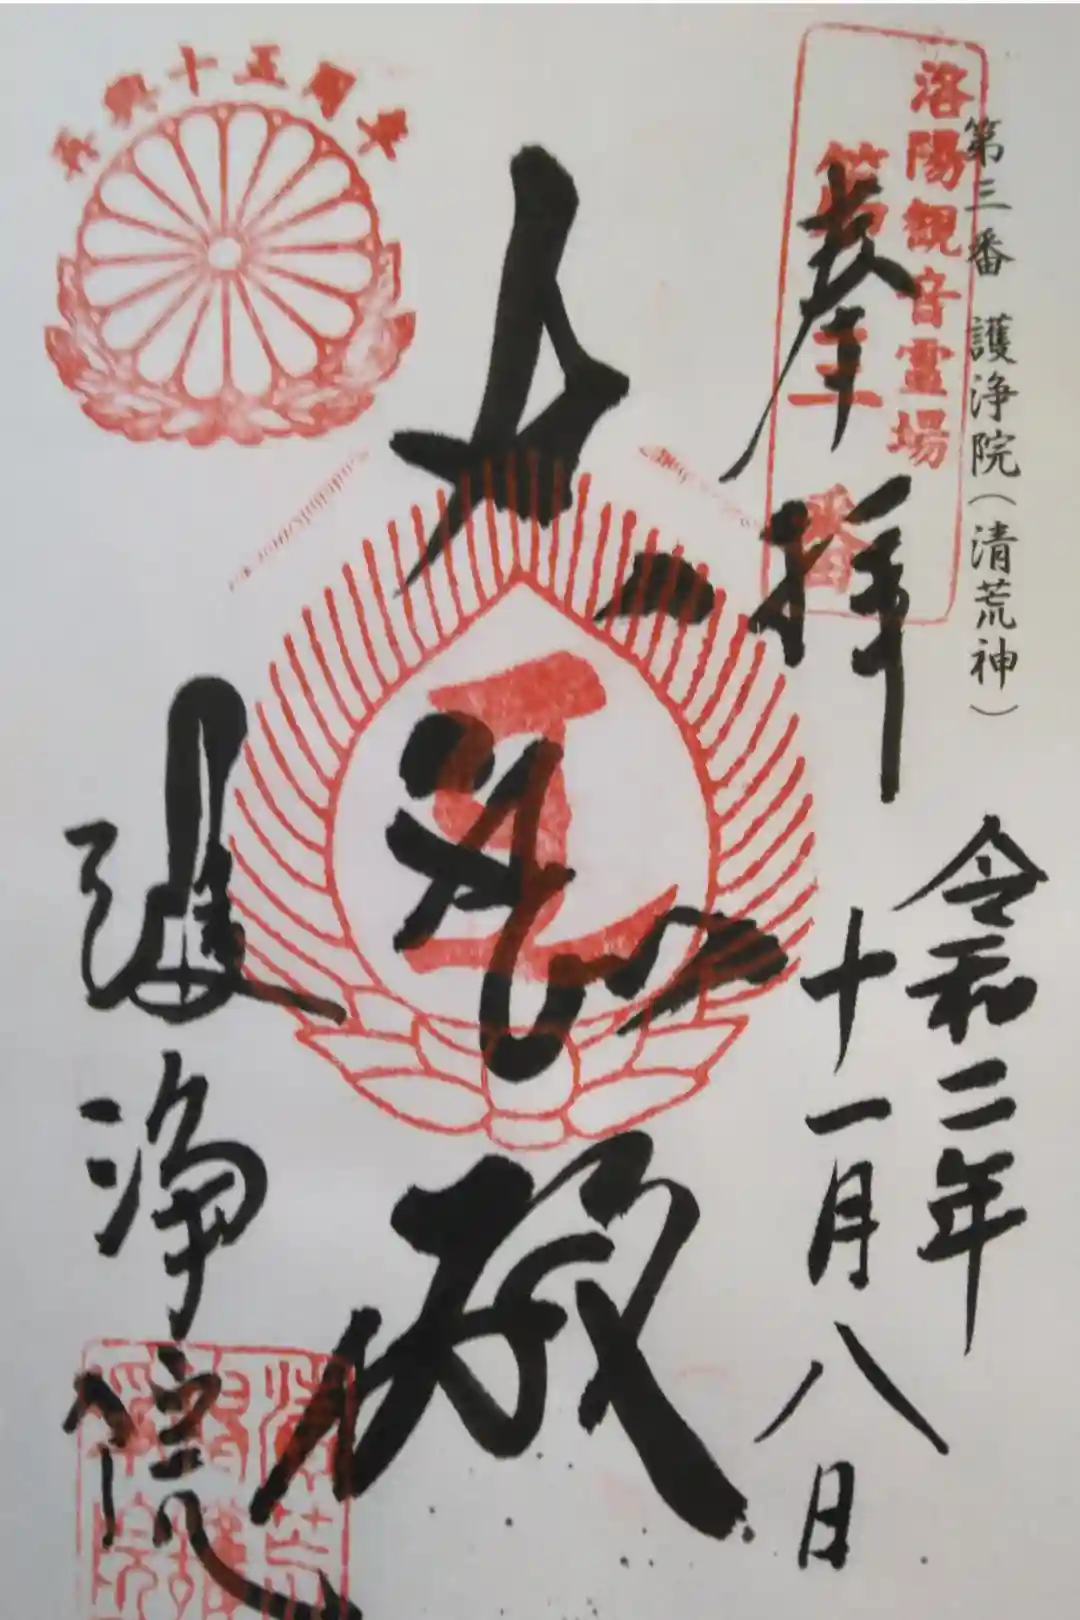 第三番 護浄院(清荒神)
洛陽観音霊場
第三番
奉拝
令和二年
十一月八日
大悲殿
再興十五周年
護浄院